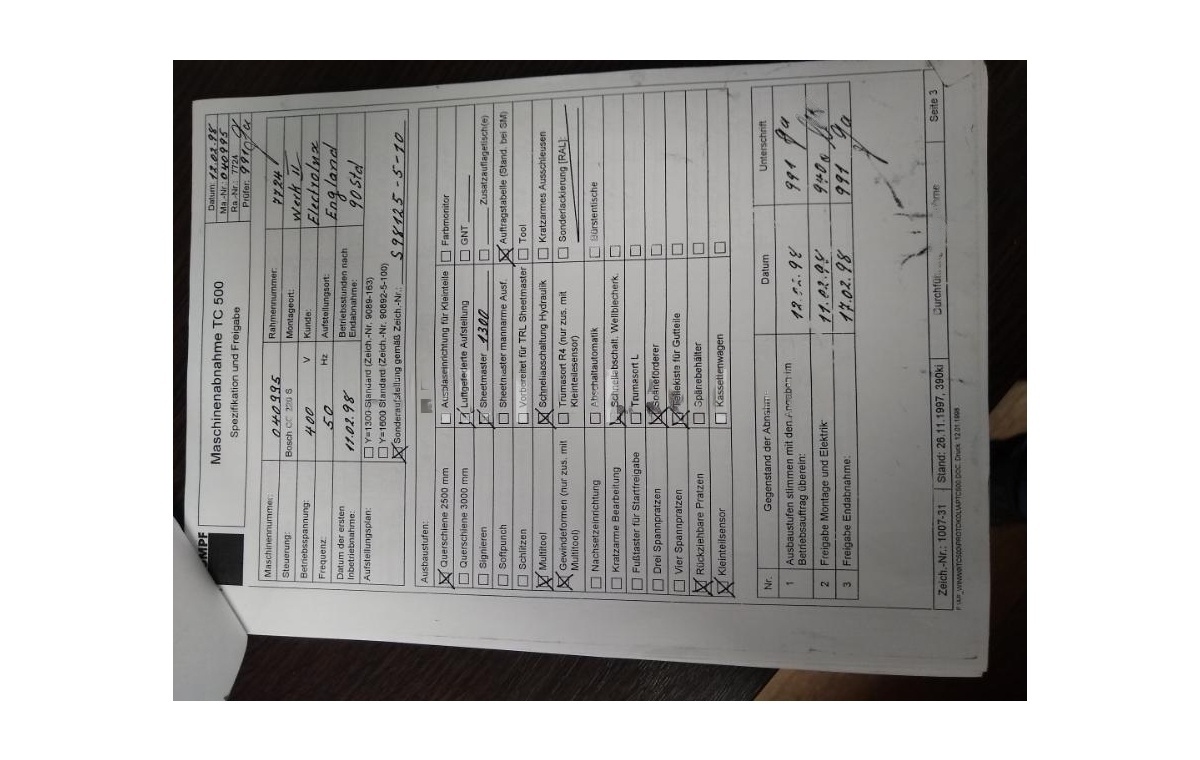 MPF
Maschinenabnahme TC 500
Spezifikation und Freigabe
Datum: 12.02.98
Ma.-Nr.: 040995
Ra.-Nr.: 7724
Prüfer: 991
Maschinennummer: 040995
Rahmennummer: 7724
Steuerung: Bosch CC 220 S
Montageort: Werk II
Betriebsspannung: 400 V
Kunde: Electrolux
Frequenz: 50 Hz
Aufstellungsort: England
Datum der ersten Inbetriebnahme: 11.02.98
Betriebsstunden nach Endabnahme: 90 Std
Aufstellungsplan:
Y=1300 Standard (Zeich.-Nr. 9089-163)
Y=1600 Standard (Zeich.-Nr. 90892-5-100)
Sonderaufstellung gemäß Zeich.-Nr.: S98125-5-10
Ausbaustufen:
Querschiene 2500 mm
Ausblaseinrichtung für Kleinteile
Farbmonitor
Querschiene 3000 mm
Luftgefederte Aufstellung
GNT
Signieren
Sheetmaster 1300
Zusatzauflagetisch(e)
Softpunch
Sheetmaster mannarme Ausf.
Auftragstabelle (Stand. bei SM)
Schlitzen
Vorbereitet für TRL Sheetmaster
Tool
Multitool
Schnellabschaltung Hydraulik
Kratzarmes Ausschleusen
Gewindeformen (nur zus. mit Multitool)
Trumasort R4 (nur zus. mit Kleinteilesensor)
Sonderlackierung [RAL]:
Nachsetzeinrichtung
Abschaltautomatik
Bürstentische
Kratzarme Bearbeitung
Schnellabschalt. Wellblecherk.
Fußtaster für Startfreigabe
Trumasort L
Drei Spannpratzen
Späneförderer
Vier Spannpratzen
für Gutteile
Rückziehbare Pratzen
Spänebehälter
Kleinteilsensor
Kassettenwagen
Nr.
Gegenstand der Abnahme
Datum
Unterschrift
1
Ausbaustufen stimmen mit den Angaben im
Betriebsauftrag überein:
12.02.98
991
2
Freigabe Montage und Elektrik:
11.02.98
940
3
Freigabe Endabnahme:
17.02.98
991
Zeich.-Nr.: 1007-31
Stand: 26.11.1997, 390ki
Seite 3
Druck: 12.01.1998